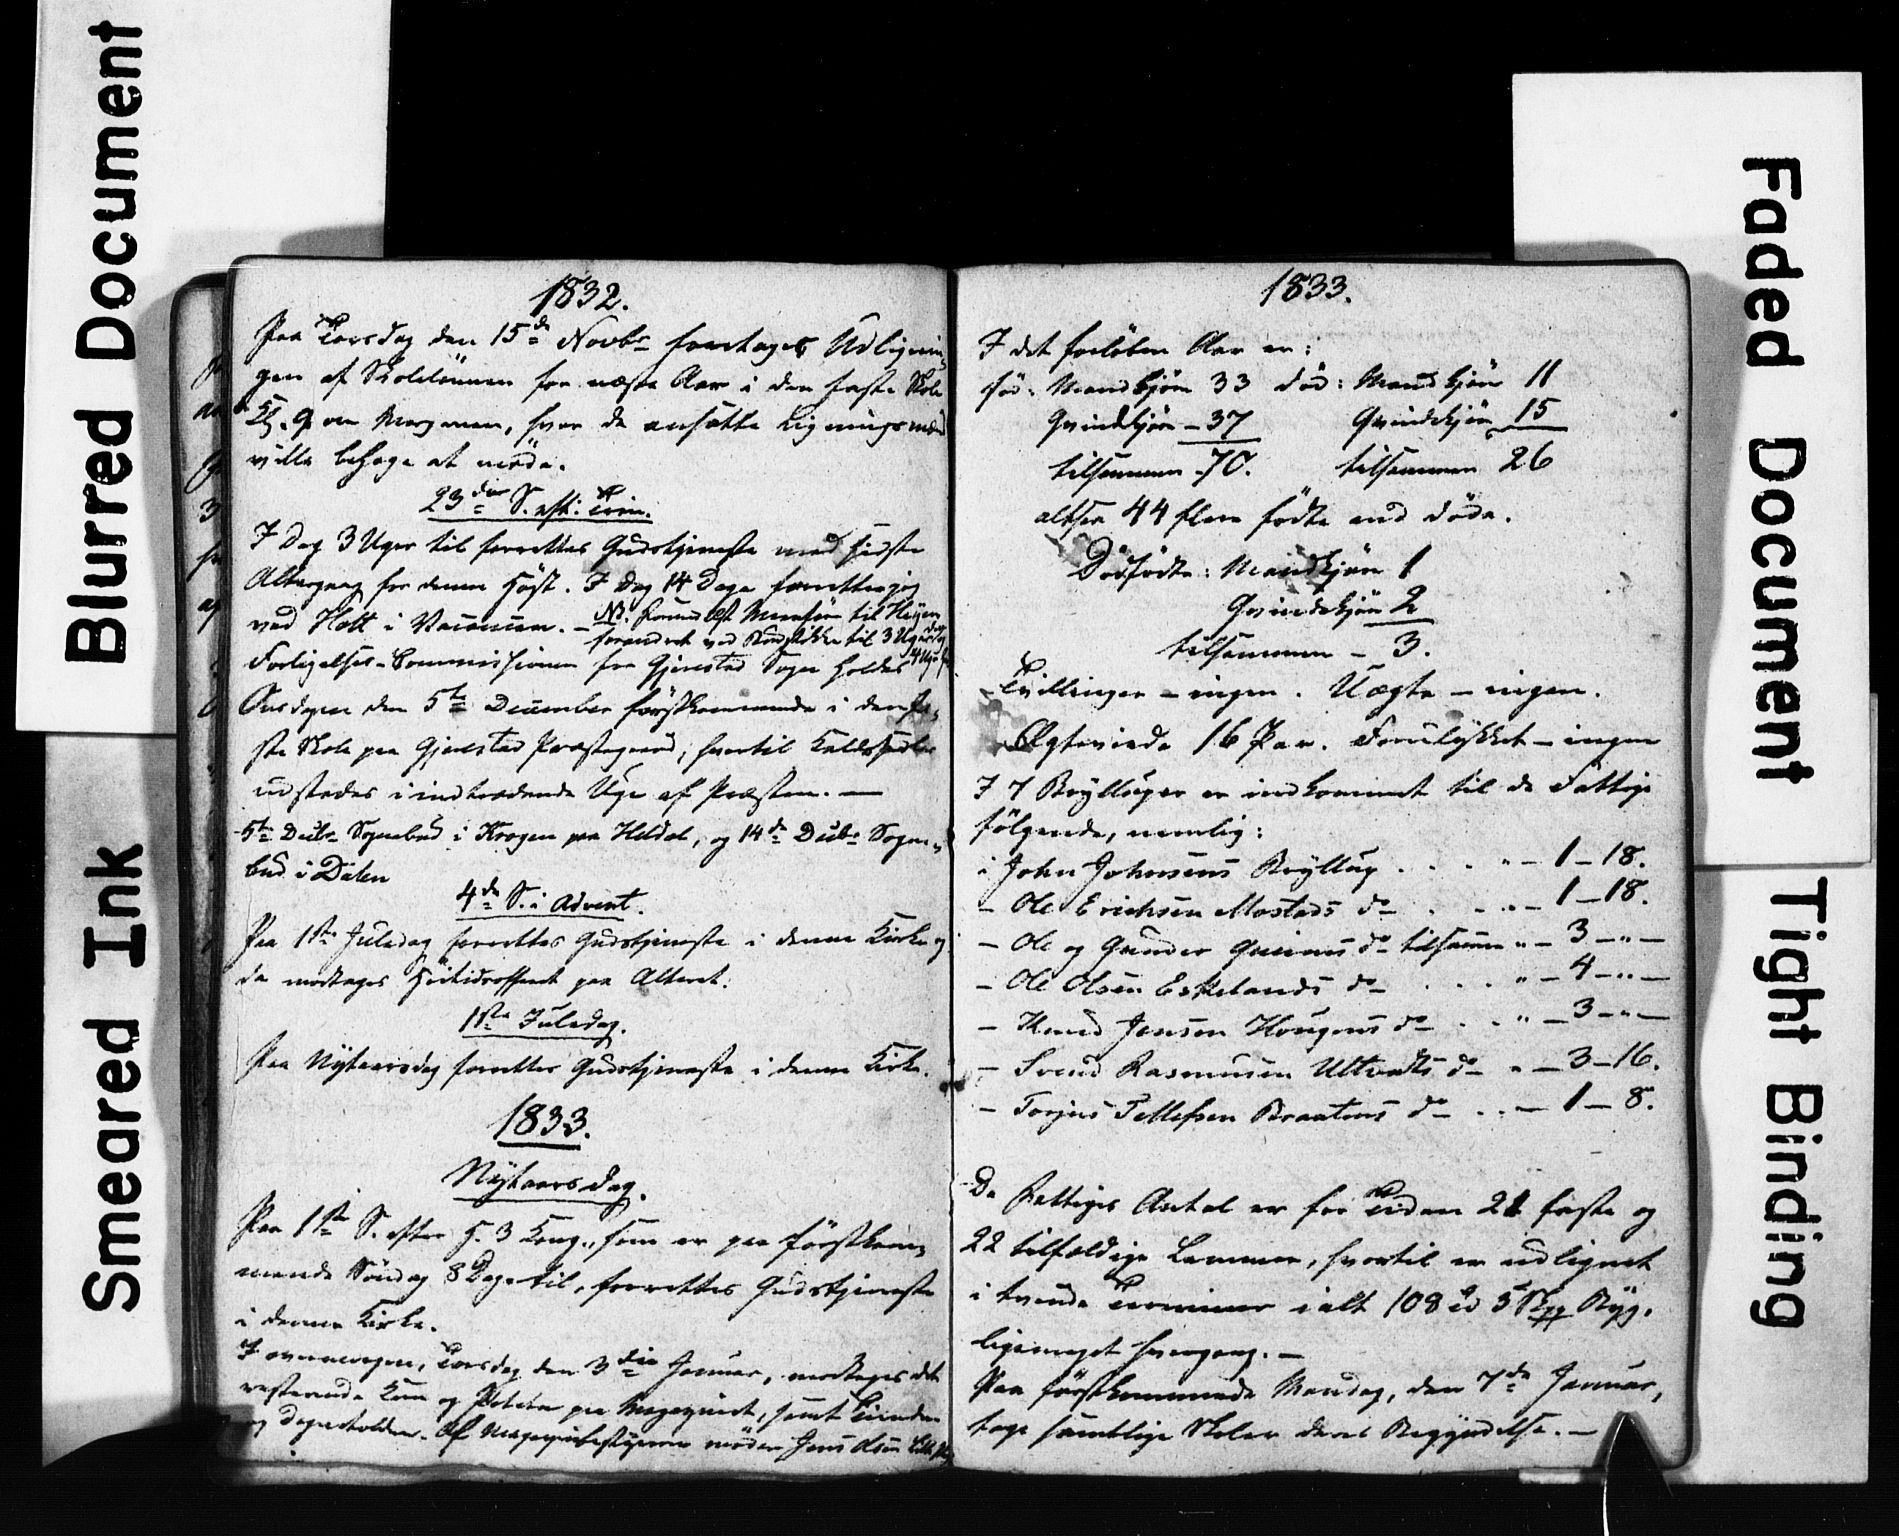 Blurred Document
Smeared Ink
1832.
Paa Torsdag den 15de Novbr foretages Udlignin-
gen af Skolelønnen for næste Aar i den faste Skole
Kl. 9 om Morgenen, hvor de ansatte Ligningsmænd
ville behage at møde.
23de S. eft: Trin.
I Dag 3 Uger til forrettes Gudstjeneste med sidste
Altergang for denne Høst. I Dag 14 Dage forretter jeg
ved Holt i Vacancen.
Forligelses-Commissionen for Gjerestad Sogn holdes
Onsdagen den 5te December førstkommende i den fa-
ste Skole paa Gjerestad Præstegaard, hvortil Kaldssedler
udstedes i indtrædende Uge af Præsten. —
5te Decbr Sognebud i Krogen paa Heldal, og 14de Decbr Sogne-
bud i Dalen
4de S. i Advent.
Paa 1ste Juledag forrettes Gudstjeneste i denne Kirke og
da modtages Høitidsofferet paa Alteret.
1ste Juledag.
Paa Nytaarsdag forrettes Gudstjeneste i denne Kirke.
1833.
Nytaarsdag.
Paa 1ste S. efter H. 3 Kong., som er paa førstkom-
mende Søndag 8 Dage til, forrettes Gudstjeneste
i denne Kirke.
I overmorgen, Torsdag den 3die Januar, modtages det
resterende Korn og Poteter paa Magazinet, samt Tienden
og Degnetolden. Af Magazinbestyrerne møder Jens Olsen
1833.
I det forløbne Aar er:
fød: Mandkjøn 33 død: Mandkjøn 11
Qvindekjøn – 37 Qvindekjøn 15
tilsammen 70. tilsammen 26
altsaa 44 flere fødte end døde.
Dødfødte: Mandkjøn 1
Qvindekjøn 2
tilsammen – 3.
Tvillinger – ingen. Uægte – ingen.
Ægteviede 16 Par. Forulykket – ingen
I 7 Bryllupper er indkommet til de Fattige
følgende, nemlig:
i John Johnsens Bryllup . . . " – 1 – 18.
– Ole Erichsen Mostads do . . " – 1 – 18.
– Ole og Gunder do tilsammen " – 3 – " –
– Ole Olsen Eskelands do . . . " – 4 – " –
– Knud Jensen Hougens do . . " – 3 – " –
– Svend Rasmusen Ultvedts do " – 3 – 16.
– Torjus Tellefsen Braatens do . . – 1 – 8.
De Fattiges Antal er for Tiden 21 faste og
22 tilfældige Lemmer, hvortil er udlignet
i tvende Terminer ialt 108 5 Skpp Byg,
ligemeget hvergang. –
Paa førstkommende Mandag, den 7de Januar,
tage samtlige Skoler deres Begyndelse. –
Faded Document
Tight Binding